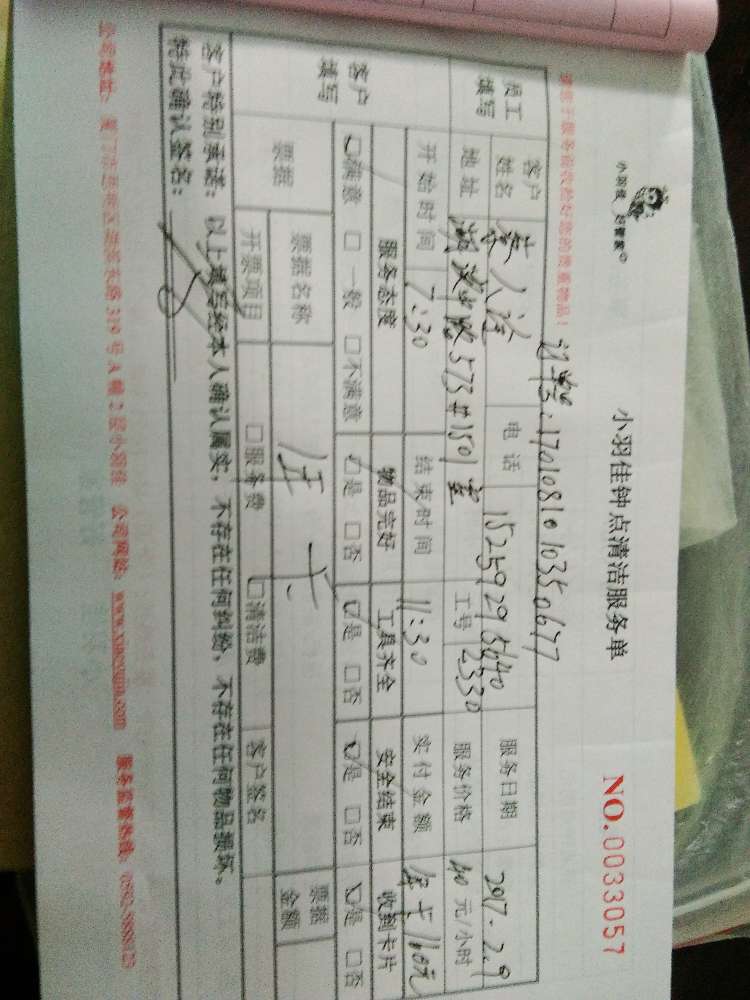 小羽佳 好管家
小羽佳钟点清洁服务单
NO.0033057
请您于服务前收检好您的贵重物品!
员工填写
客户姓名
电话
15259298640
服务日期
2017.2.9
地址
573#1501室
工号
2330
服务价格
40元/小时
开始时间
7:30
结束时间
11:30
实付金额
160元
客户填写
服务态度
物品完好
工具齐全
安全结束
收到卡片
□满意 □一般 □不满意
□是 □否
□是 □否
□是 □否
□是 □否
票据
票据名称
票据金额
开票项目
□服务费 □清洁费
客户签名
客户特别承诺:以上填写经本人确认属实,不存在任何纠纷,不存在任何物品损坏。
特此确认签名:
公司地址:
319号A幢2层小羽佳 公司网络:www.xiaoyujia.com 服务监督热线: